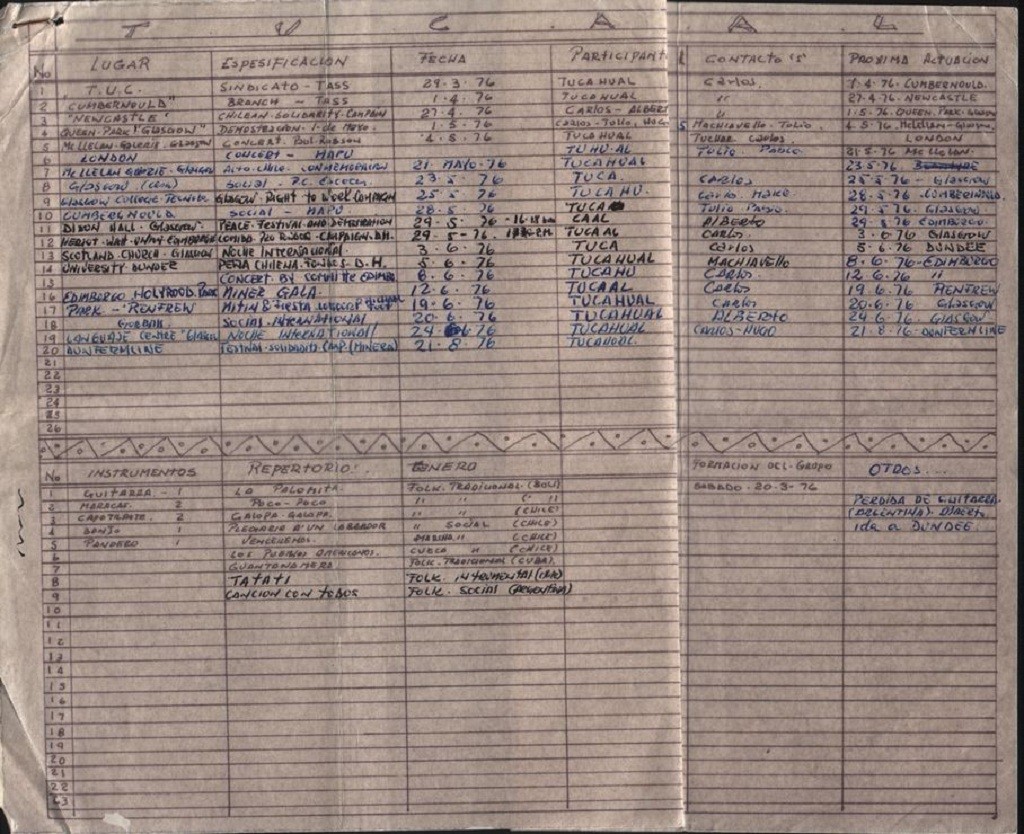 T U C A A L
No LUGAR ESPESIFICACION FECHA PARTICIPANT CONTACTO "S" PROXIMA ACTUACION
1 T.U.C. SINDICATO - TASS 29-3-76 TUCAHUAL Carlos 1-4-76. CUMBERNOULD.
2 CUMBERNOULD" BRANCH - TASS 1-4-76 TUCAHUAL " 27-4-76. NEWCASTLE
3 "NEWCASTLE" CHILEAN SOLIDARITY CAMPAIN 27-4-76 CARLOS - ALBERT " 1-5-76. QUEEN. PARK
4 QUEEN-PARK "GLASGOW" DEMOSTRACION 1- de Mayo. 1-5-76 CARLOS - Tulio, MACHIAVELLO - Tulio. 4-5-76. McLellan - Glasgow.
5 Mc LELLAN - GALERIE. GLASGOW CONCERT. Paul Robson 4-5-76 TUCAHUAL Carlos LONDON
6 LONDON CONCERT - MAPU TUHU-AL Tulio Pablo 21-5-76 McLELLAN.
7 Mc LELLAN GALERIE - GLASGOW ACTO. CHILE. 21. MAYO-76 TUCAHUAL 23-5-76
8 GLASGOW. SOCIAL - P.C. ESCOCES 23-5-76 TUCA. Carlos 25-5-76 - GLASGOW
9 GLASGOW COLLEGE GLASGOW - RIGHT to WORK CAMPAIGN 25-5-76 TUCAHU. Carlos 28-5-76 - CUMBERNOULD.
10 CUMBERNOULD SOCIAL - MAPU 28-5-76 TUCA Tulio 29-5-76 - GLASGOW
11 DIXON HALL - GLASGOW. PEACE - FESTIVAL AND DEMOSTRATION 29-5-76 CAAL Alberto 29-5-76 EDIMBURGO
12 HERIOT-WATT-UNION 29-5-76. TUCAAL Carlos 3-6-76 GLASGOW
13 SCOTLAND. CHURCH - GLASGOW NOCHE INTERNACIONAL 3-6-76 TUCA Carlos 5-6-76 DUNDEE
14 UNIVERSITY DUNDEE PEÑA CHILENA. D.H. 5-6-76 TUCAHUAL MACHIAVELLO 8-6-76 - EDIMBURGO
CONCERT. BY COMMITTE EDIMBO 8-6-76 TUCAHU Carlos 12-6-76 "
16 EDIMBURGO HOLYROOD PARK MINER GALA. 12-6-76 TUCAAL Carlos 19-6-76 RENFREW
17 PARK - RENFREW MITIN & FIESTA 19-6-76 TUCAHUAL Carlos 20-6-76 - GLASGOW
18 SOCIAL - INTERNATIONAL 20-6-76 TUCAHUAL ALBERTO 24-6-76 GLASGOW
19 LANGUAJE CENTRE "GLASGOW NOCHE INTERNATIONAL 24-6-76 TUCAHUAL CARLOS-HUGO 21-8-76 - DUNFERMLINE
20 DUNFERMLINE FESTIVAL-SOLIDARITY CAMP. (MINERS) 21-8-76 TUCAHUAL.
21
22
23
24
25
26
No INSTRUMENTOS REPERTORIO: GENERO FORMACION DEL-GRUPO OTROS...
1 GUITARRA - 1 LA PALOMITA. FOLK. TRADICIONAL (BOLI) SABADO - 20-3-76
2 MARACAS. 2 POCO - POCO " " (" ") PERDIDA DE GUITARRA
3 2 GALOPA - GALOPA. " " (CHILE) ALBERTO
4 BANJO 1 PLEGARIA A UN LABRADOR " SOCIAL (CHILE) ida a DUNDEE.
5 PANDERO 1 VENCEREMOS. MARCHA " (CHILE)
6 LOS PUEBLOS AMERICANOS. CUECA " (CHILE)
7 GUANTANAMERA FOLK. TRADICIONAL (CUBA).
8 TATATI FOLK. INTRUMENTAL
9 CANCION CON TODOS FOLK. SOCIAL (ARGENTINA)
10
11
12
13
14
15
16
17
18
19
20
21
22
23